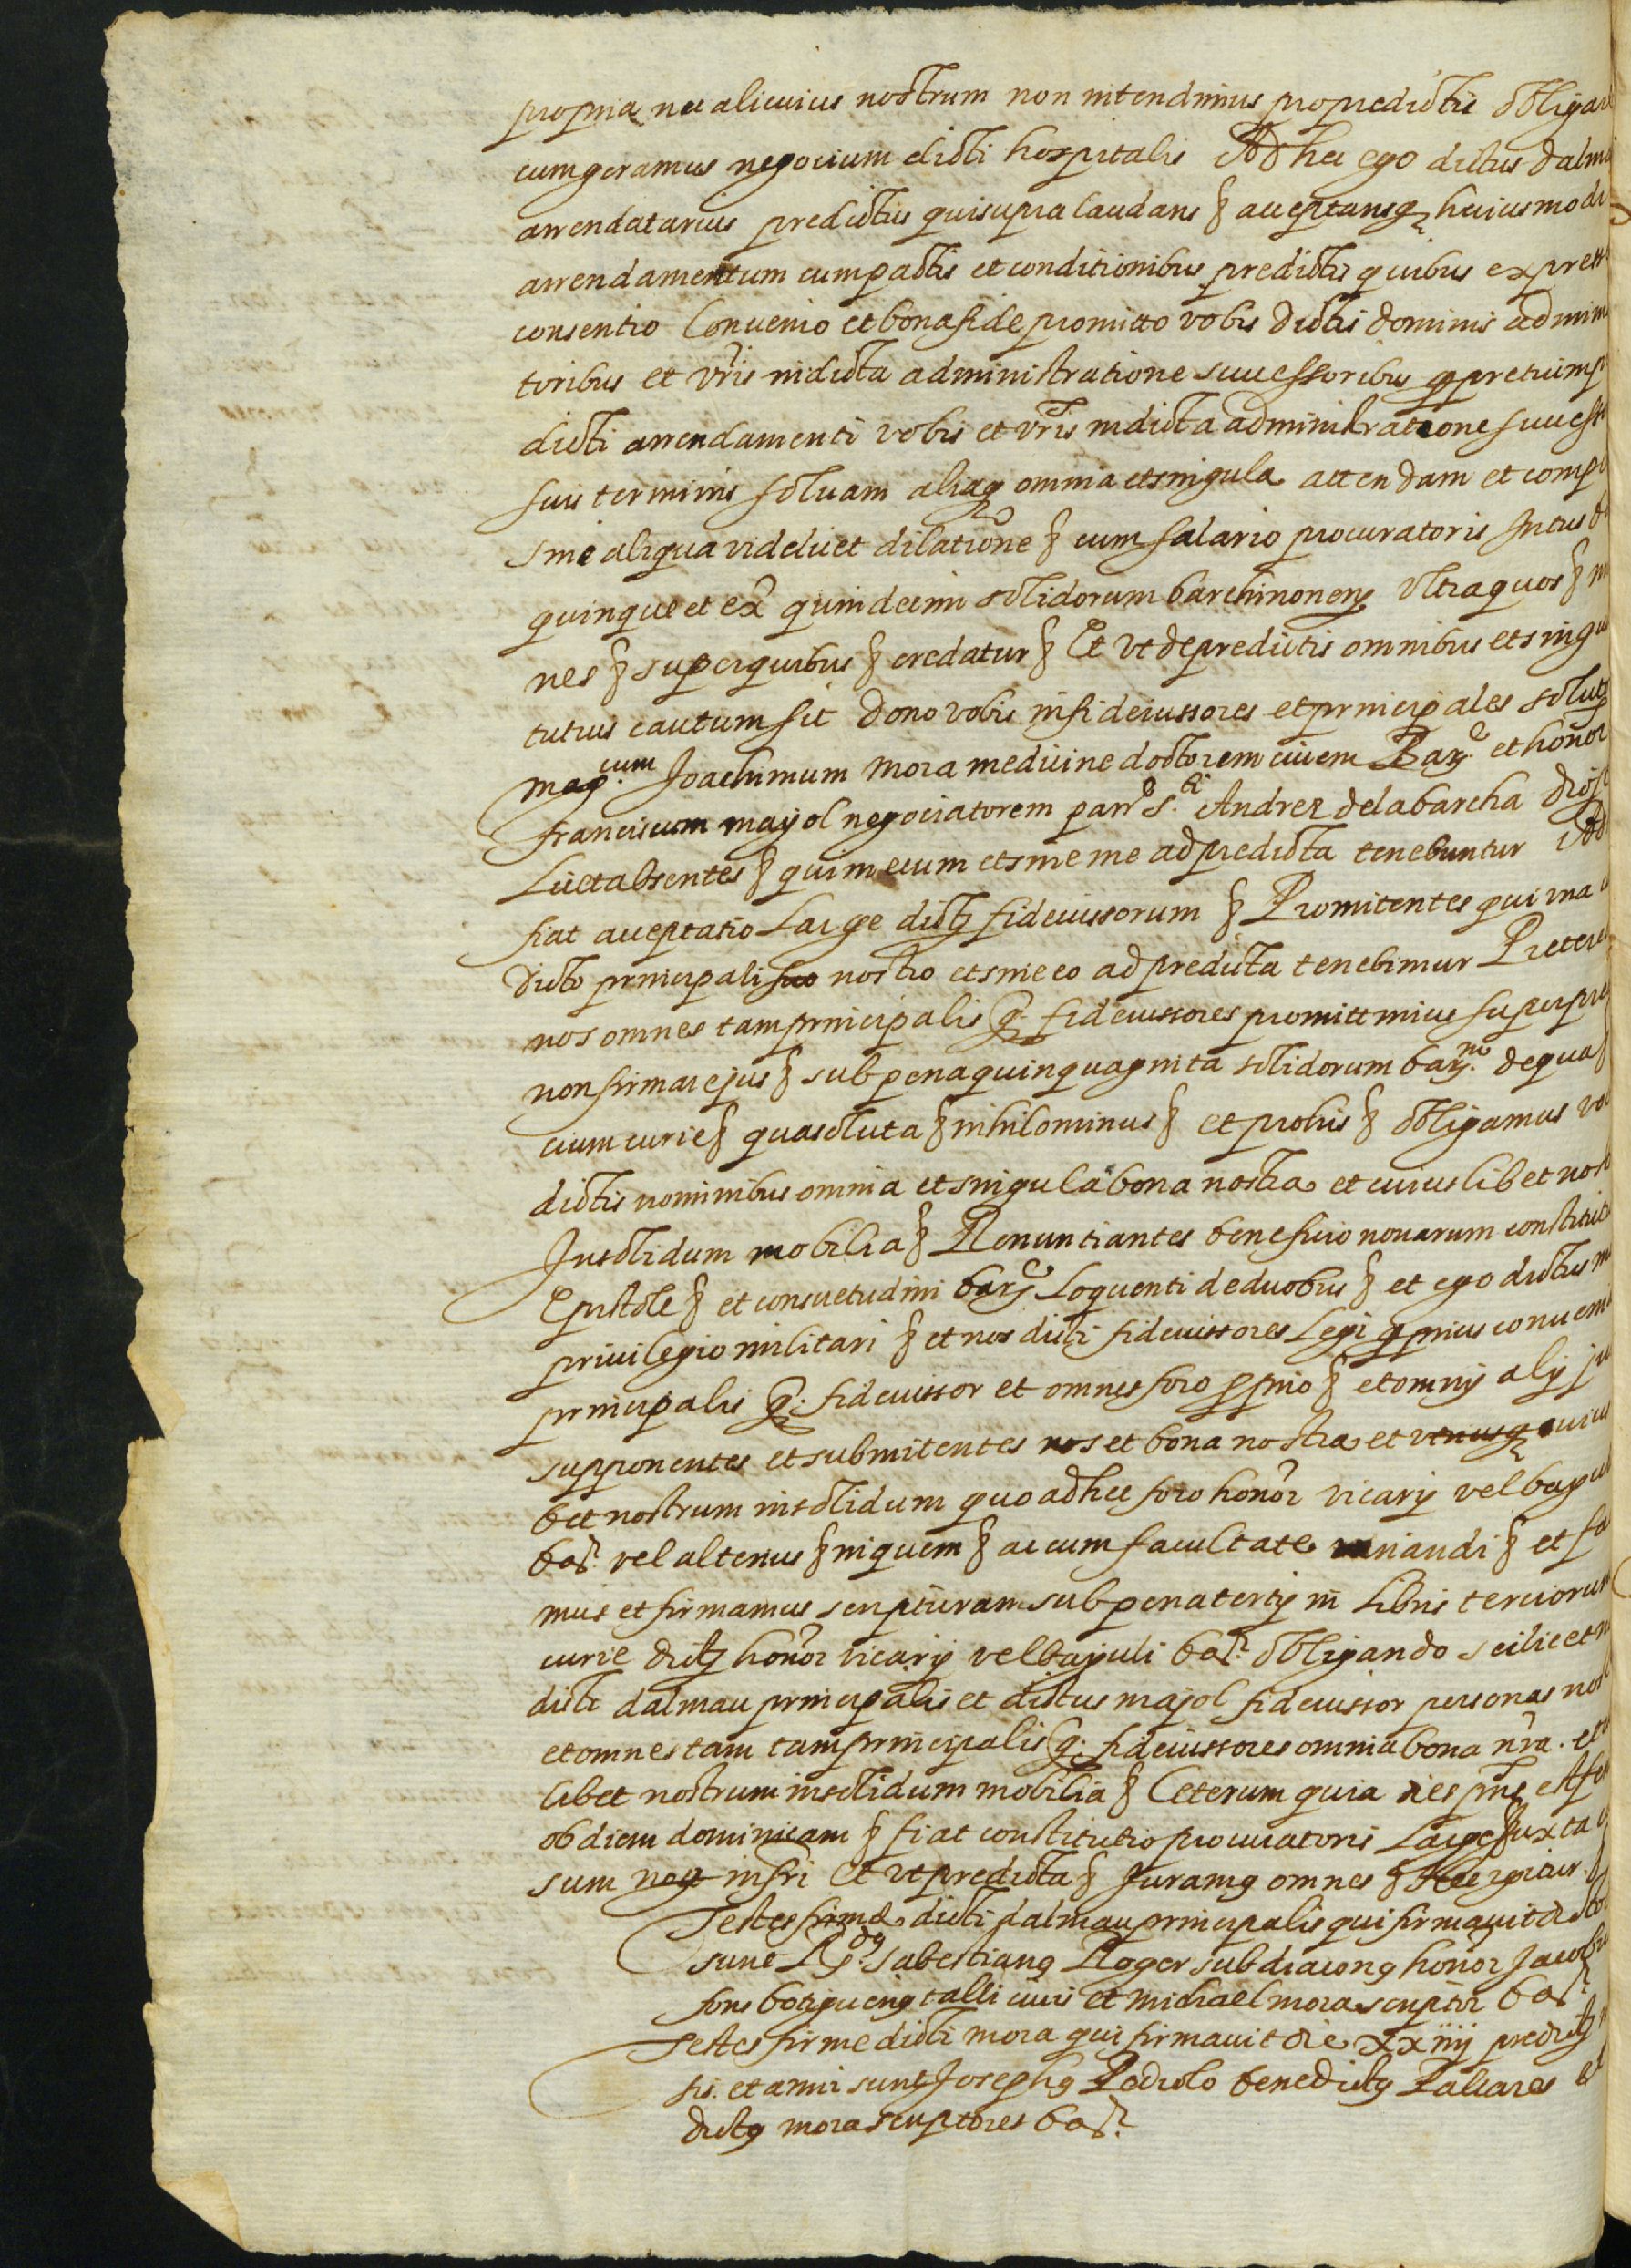 propria nec alicuius nostrum non intendimus pro predictis obligare
cum geramus negocium dicti hospitalis Ad hec ego dictus dalma
arrendatarius predictus qui supra laudans § acceptansq huiusmodi
arrendamentum cum pactis et conditionibus predictis quibus expresse
consentio Convenio et bona fide promitto vobis dictis dominis admini
toribus et vris in dicta administratione successoribus q pretium
dicti arrendamenti vobis et vris in dicta administratione success
suis terminis solvam aliaq omnia et singula attendam et compl
sine aliqua videlicet dilatione § cum salario procuratoris Intus
quinque et ex quindecim solidorum barchinonen Ultra quos §
nes § super quibus § credatur § Et ut de predictis omnibus et singu
tutius cautum sit dono vobis in fideiussores et principales solut
mag.cum Joachimum Mora medicine doctorem civem Bar.e et honor
franciscum mayol negociatorem parre S.ti Andree de la barcha
Licet absentes § qui mecum et sine me ad predicta tenebuntur Ad
fiat acceptatio Large dict fideiussorum § Promitentes qui una
dicto principali suo nostro et sine eo ad predicta tenebimur Preterea
nos omnes tam principalis q. fideiussores promittimus super pre
non firmare jus § sub pena quinquaginta solidorum bar.no de qua
cium curie § qua soluta § nihilominus § et pro his § obligamus vo
dictis nominibus omnia et singula bona nostra et cuiuslibet nost
Insolidum mobilia § Renuntiantes beneficio novarum constituti
Epistole § et consuetudini bar.e Loquenti de duobus § et ego dictus
privilegio militari § et nos dicti fideiussores Legi q prius conveni
principalis q. fideiussor et omnes foro pprio § et omnij alij ju
supponentes et submitentes nos et bona nostra et utriusq cuius
bet nostrum insolidum quo ad hec foro honor vicarij vel bayul
bar. vel alterius § in quem § ac cum facultate variandi § et fa
mus et firmamus scripturam sub pena tertij in Libris terciorum
curie dict honor vicarij vel bajuli bar. obligando scilicet
dicti dalmau principalis et dictus majol fideiussor personas nos
et omnes tam tam principalis q. fideiussores omnia bona nra. et
libet nostrum insolidum mobilia § Ceterum quia dies pns est
ob diem dominicam § fiat constitutio procuratoris Large Juxta
sum neq infri Et ut predicta § Juramq omnes § Hec igitur
Testes firme dicti dalmau principalis qui firmavit
sunt Rdg. Sabestianq Roger subdiaconq honor Jacob
fons botiguenq talli civis et michael mora scriptor bar.
Testes firme dicti mora qui firmavit die xxiiij predict
sis. et anni sunt Josephq Pedrolo benedictq Pallares et
dictq mora scriptores bar.